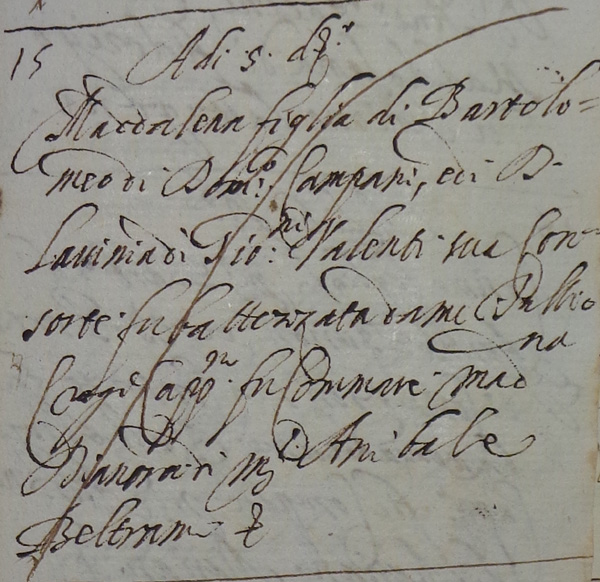 15 Adi 5 d.º
Maddalena figlia di Bartolo=
meo di Dom:co Campani, e di D.
Lavinia di Gio: Valenti sua Con=
sorte fu battezzata da me Giulli
na
Cap.no fu Commare Mad
Dianora di m. Anibale
Beltrami